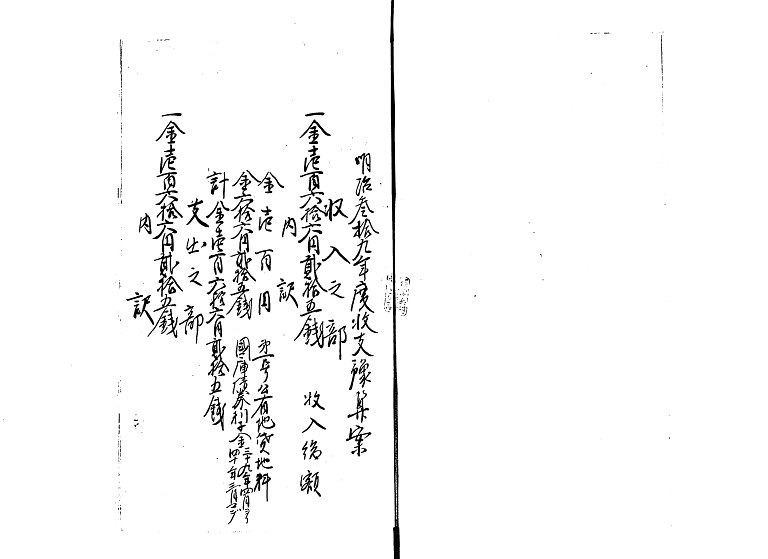 明治叁拾九年度收支豫算案
收入之部
一金壱百六拾六円貳拾五錢 收入総額
内訳
金壱百円 公有地貸地料
金六拾六円貳拾五錢 國庫債券利子金 三十九年四月ヨリ 四十年三月マデ
計金壱百六拾六円貳拾五錢
支出之部
一金壱百六拾六円貳拾五錢
内訳